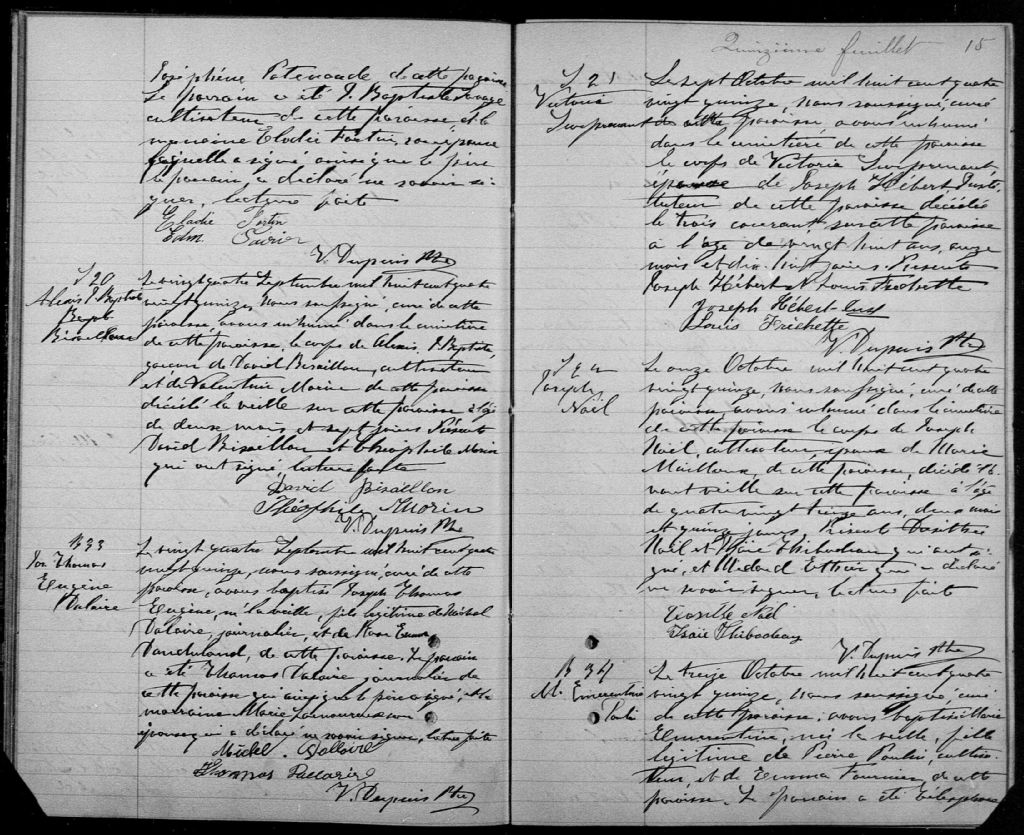 Joséphine Patenaude de cette paroisse
Le parrain a été J. Baptiste
cultivateur de cette paroisse et la
marraine Elodie Fortin, son épouse
laquelle a signé ainsi que le père
le parrain a déclaré ne savoir si-
gner, lecture faite
Elodie Fortin
Edm.
V. Dupuis Ptre
S 20
Alexis J. Bapt
Bisaillon
Le vingt quatre Septembre mil huit cent quatre
vingt quinze, nous soussigné, curé de cette
paroisse, avons inhumé dans le cimetière
de cette paroisse, le corps de Alexis J. Baptiste,
garçon de David Bisaillon, cultivateur
et de Valentine Morin de cette paroisse
décédé la veille sur cette paroisse à l'âge
de deux mois et sept jours Présents
David Bisaillon et Théophile Morin
qui ont signé, lecture faite
David Bisaillon
Théophile Morin
V. Dupuis Ptre
B 33
Jos Thomas
Eugène
Dalaire
Le vingt quatre Septembre mil huit cent quatre
vingt quinze, nous soussigné, curé de cette
paroisse, avons baptisé Joseph Thomas
Eugène, né la veille, fils légitime de Michel
Dalaire, journalier, et de Rose Emma
de cette paroisse. Le parrain
a été Thomas Dalaire journalier de
cette paroisse qui ainsi que le père a signé, et la
marraine Marie Lamoureux son
épouse qui a déclaré ne savoir signer, lecture faite
Michel Dallaire
Thomas
V. Dupuis Ptre
Quinzième feuillet 15
S 21
Victoria
Surprenant
Le sept Octobre mil huit cent quatre
vingt quinze, nous soussigné, curé
de cette paroisse, avons inhumé
dans le cimetière de cette paroisse
le corps de Victoria Surprenant,
épouse de Joseph Hébert Insti-
tuteur de cette paroisse décédée
le trois courant sur cette paroisse
à l'âge de vingt huit ans, onze
mois et dix-huit jours. Présents
Joseph Hébert et Louis Fréchette
Joseph Hébert
Louis Frichette
V. Dupuis Ptre
S 22
Joseph
Noël
Le onze Octobre mil huit cent quatre
vingt quinze, nous soussigné, curé de cette
paroisse, avons inhumé dans le cimetière
de cette paroisse le corps de Joseph
Noël, cultivateur, époux de Marie
Mailloux, de cette paroisse, décédé l'a-
vant veille sur cette paroisse à l'âge
de quatre vingt treize ans, deux mois
et quinze jours Présents Dosithée
Noël et Isaïe Thibodeau qui ont si-
gné, et Médard Ethier qui a déclaré
ne savoir signer, lecture faite
Noël
Isaïe Thibodeau
V. Dupuis Ptre
B 34
M. Emerentine
Le treize Octobre mil huit cent quatre
vingt quinze, nous soussigné, curé
de cette paroisse, avons baptisé Marie
Emerentine, née la veille, fille
légitime de Pierre Poulin, cultiva-
teur, et de Emma Fournier, de cette
paroisse. Le parrain a été Télesphore